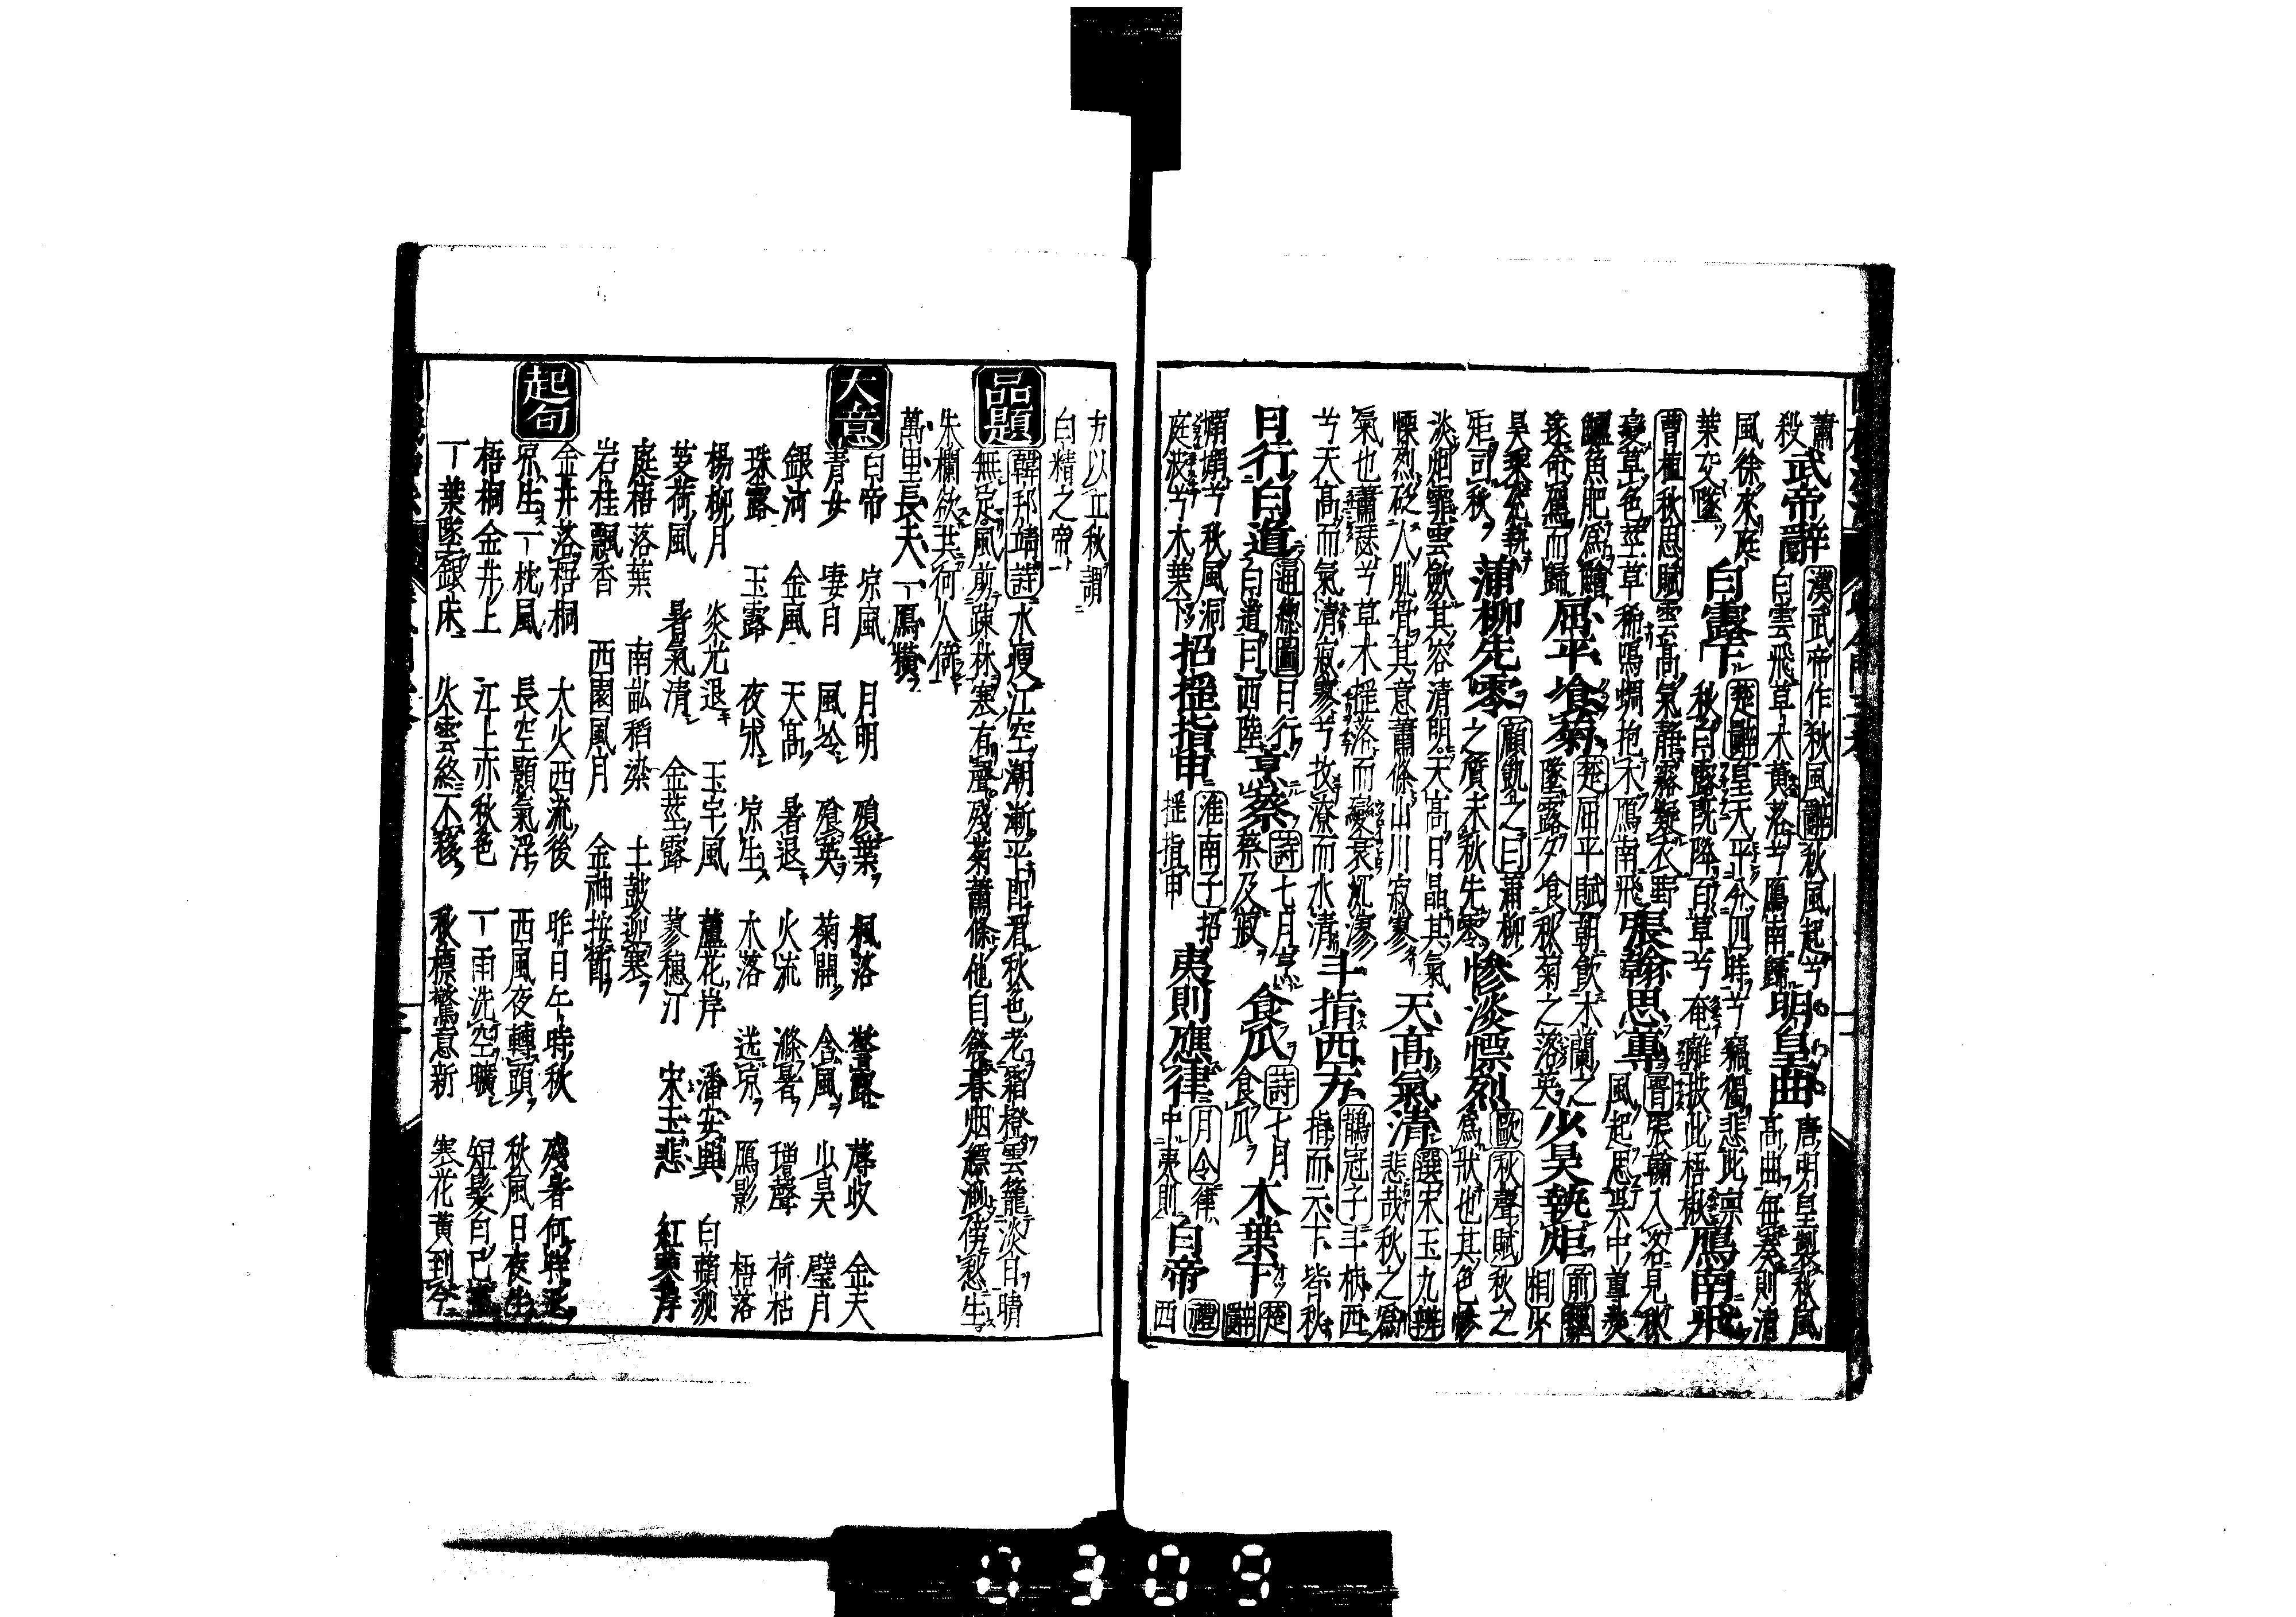 蕭殺武帝辭漢武帝作秋風辭秋風起兮白雲飛草木黄落兮鴈南歸明皇曲唐明皇製秋風高曲毎奏則清
風徐來庭葉交墜白露下楚辭皇天平分四時兮竊獨悲此凛秋白露既降百草兮奄離披此梧楸鴈南飛
曹植秋思賦雲高氣靜露凝衣野變草色莖草稀鳴蜩抱木鴈南飛張翰思蓴晋張翰入洛見秋風起思吳中蓴羹
鱸魚肥爲鱠遂命駕而歸屈平飡菊楚屈平賦朝飲木蘭之墜露夕飡秋菊之落英少昊執矩前
昊乘兌執矩司秋蒲柳先零顧凱之曰蒲柳之質未秋先零慘淡慄烈歐秋聲賦秋之爲狀也其色慘
淡烟霏雲斂其容清明天高日晶其氣慄烈砭人肌骨其意蕭條山川寂寥天高氣清選宋玉九辨悲哉秋之爲
氣也蕭瑟兮草木揺落而變衰泬漻兮天高而氣清寂寥兮收潦而水清斗指西方鶡冠子斗柄西指而天下皆秋
日行白道通總圖日行白道曰西陸烹葵詩七月烹葵及菽食瓜詩七月食瓜木葉下楚辭
嫋嫋兮秋風洞庭波兮木葉下招揺指申淮南子招揺指申夷則應律月令律中夷則白帝禮西
方以立秋謂白精之帝
品題
韓邦靖詩水痩江空潮漸平酣看秋色老霜橙雲籠淡日晴
無定風剪疎林塞有聲殘菊蕭條他自發暮烟縹渺伴愁生
朱欄欲共何人倚
萬里長天一鴈橫
大意
白帝 凉風 月明 殞葉 楓落 警露 蓐收 金天
青女 凄白 風冷 飡英 菊開 含風 少昊 璧月
銀河 金風 天高 暑退 火流 滌暑 蛩聲 荷枯
珠露 玉露 夜永 凉生 木落 送凉 鴈影 梧落
楊柳月 炎光退 玉宇風 蘆花岸 潘安興 白蘋洲
芰荷風 暑氣清 金莖露 蓼穗汀 宋玉悲 紅蓼岸
庭梧落葉 南畝稻染 土鼓迎寒
岩桂飄香 西園風月 金神按節
起句
金井落梧桐 大火西流後 昨日午時秋 殘暑何時退
凉生一枕風 長空顥氣浮 西風夜轉頭 秋風日夜生
梧桐金井上 江上亦秋色 一雨洗空曠 短髮白已
一葉墜銀床 火雲終不移 秋標驚意新 寒花黄到今
0309